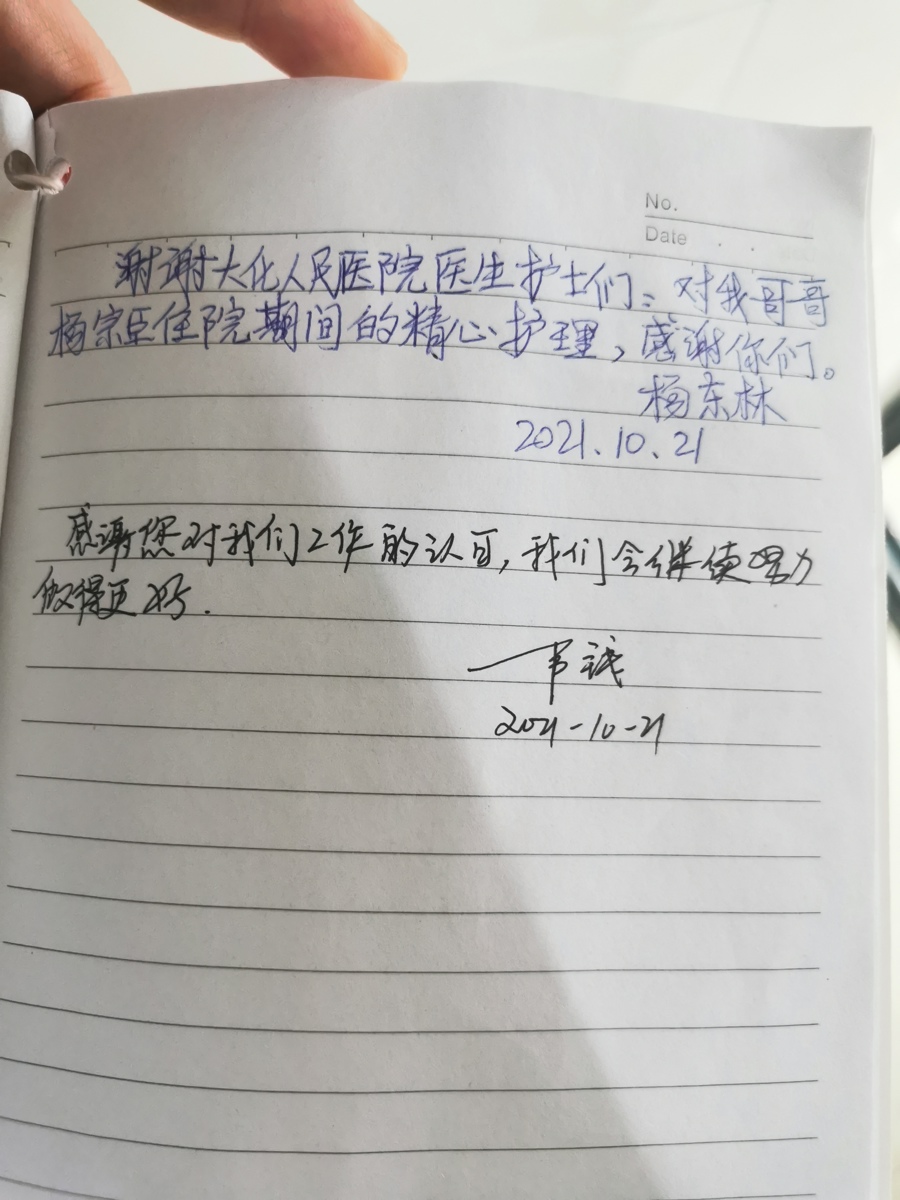 No.
Date
谢谢大化人民医院医生护士们：对我哥哥
杨宗臣住院期间的精心护理，感谢你们。
杨东林
2021.10.21
感谢您对我们工作的认可，我们会继续努力
做得更好.
韦诚
2021-10-21